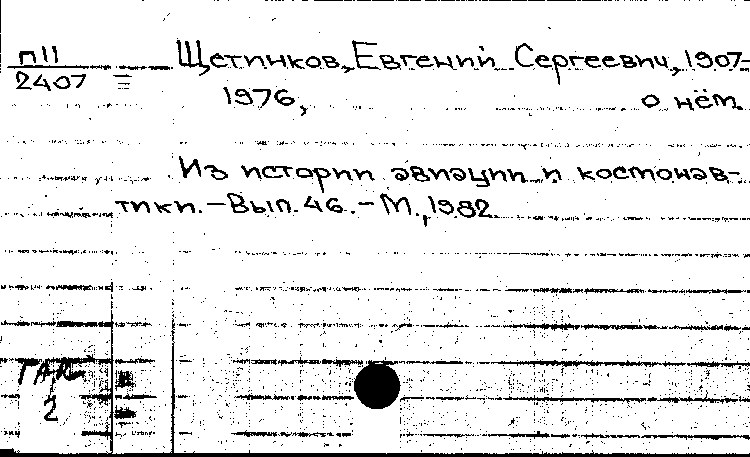 П11
2407
Щетинков, Евгений Сергеевич, 1907-
1976, о нём.
Из истории авиации и космонав-
тики. - Вып. 46. - М., 1982
ГАК
2